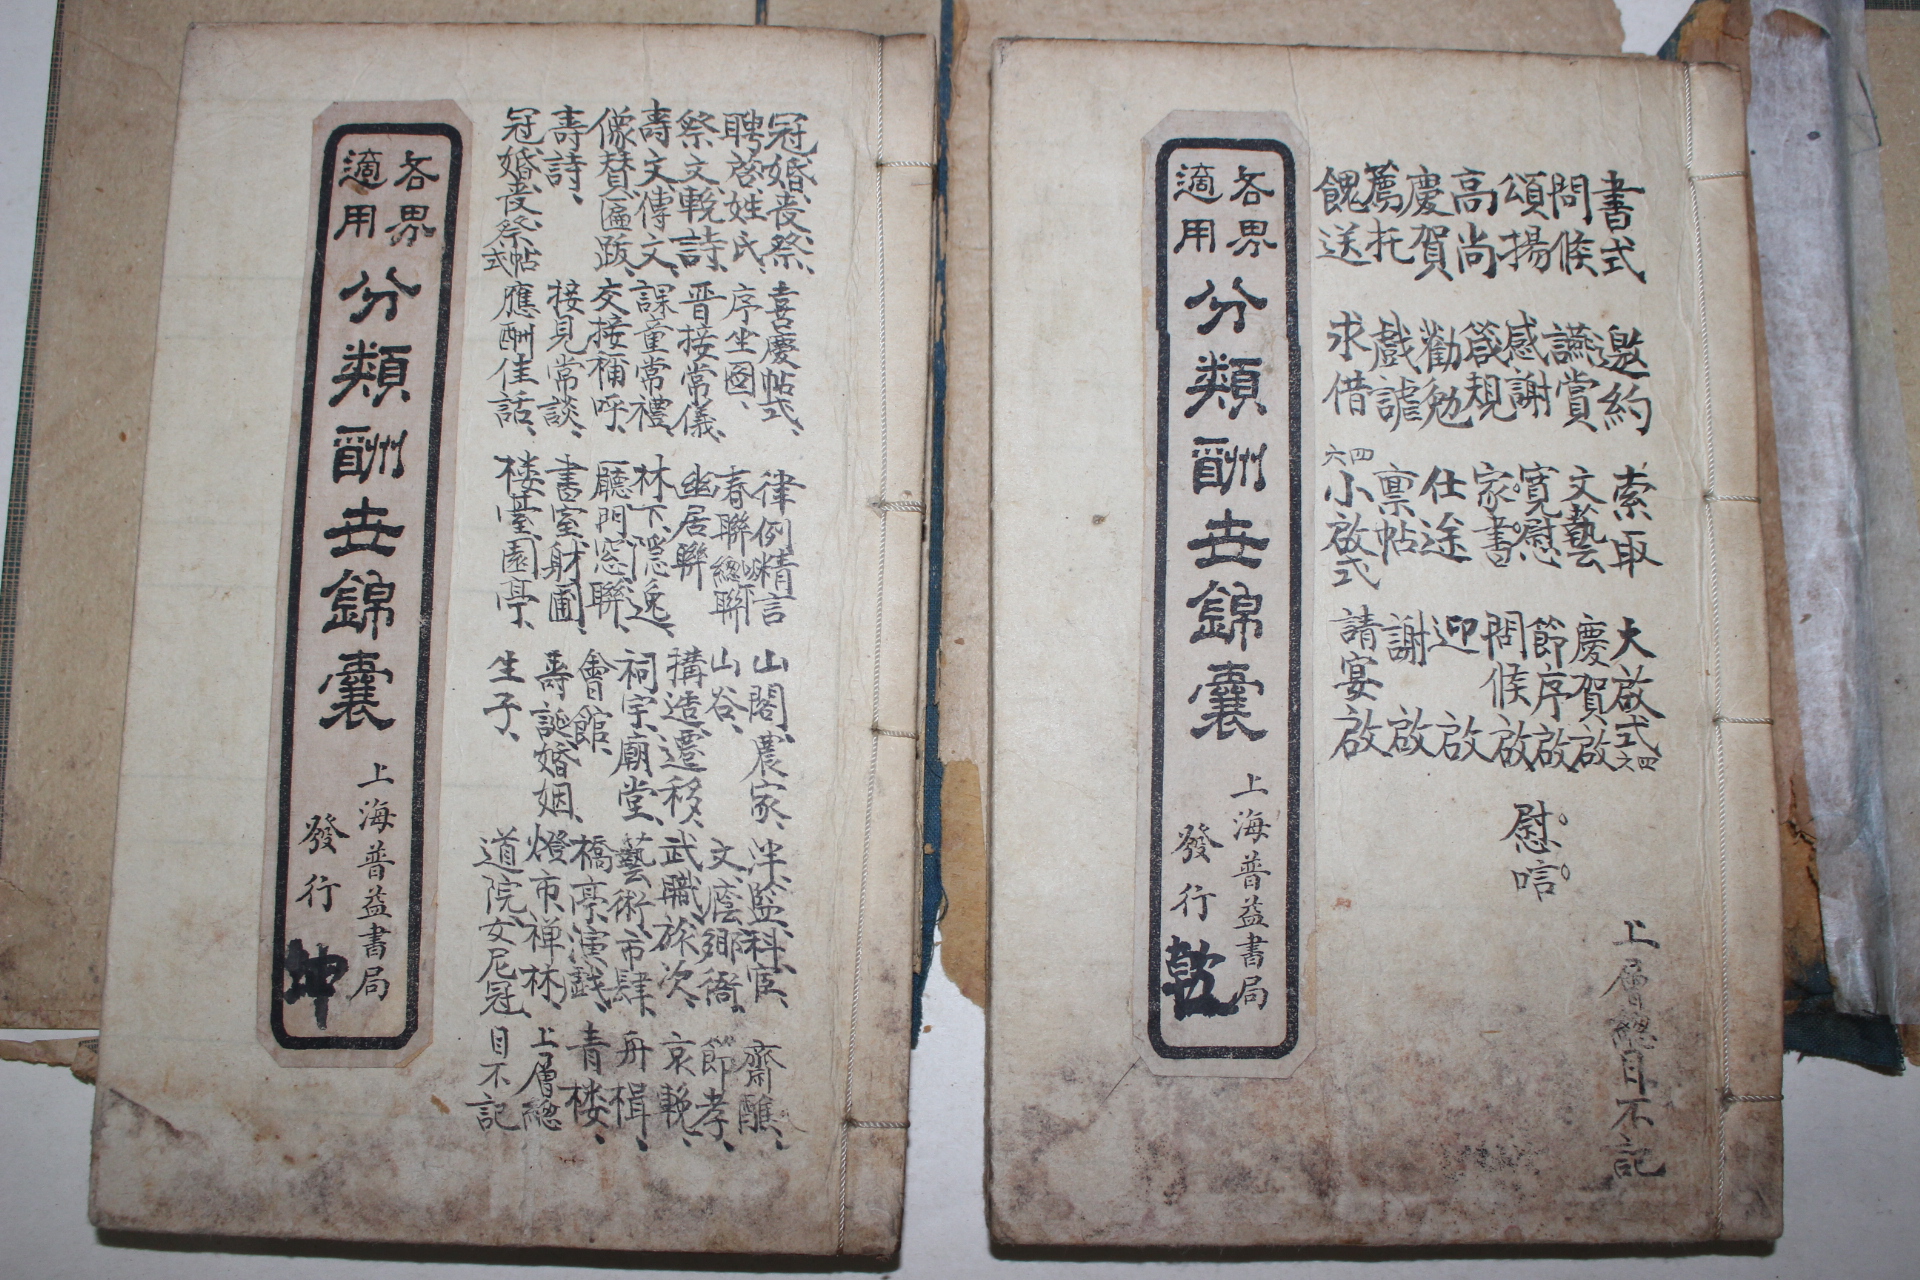 書式
問候
頌揚
高尚
慶賀
薦托
餽送
邀約
讌賞
感謝
箴規
勸勉
戲謔
求借
索取
文藝
寬慰
家書
仕途
稟帖
四六小啟式
大啟式四六
慶賀、啟
節序啟
問候啟
迎啟
謝啟
請宴啟
慰唁
上層總目不記
各界
適用
分類酬世錦囊
上海普益書局
發行
乾
冠婚喪祭、
聘啓、姓氏、
祭文、輓詩、
壽文、傳文、
像贊、匾跋、
壽詩、
冠婚喪祭帖式
喜慶帖式、
序坐圖、
晋接常儀、
課童常禮、
交接稱呼、
接見常談、
應酬佳話、
律例精言
春聯總聯
幽居聯
林下、隱逸、
廳門窓聯、
書室、財圃、
楼臺、園亭、
山閣、農家、
山谷、
搆造、遷移、
祠宇、廟堂、
會館、
壽誕、婚姻、
生子、
泮監、科宦、
文廕、鄉衙、
武職、旅次、
藝術、市肆、
橋亭、演戲、
燈市、禅林、
道院、女尼冠
齋醮、
節孝、
哀輓、
舟楫、
青楼、
上層總
目不記
各界
適用
分類酬世錦囊
上海普益書局
發行
坤